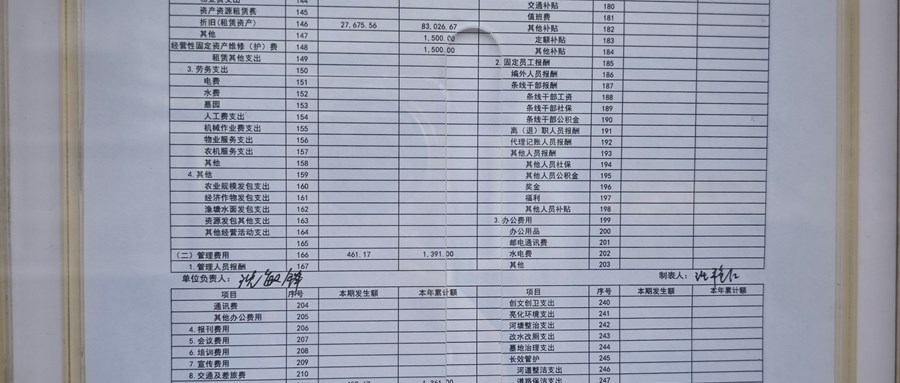 144
资产资源租赁费 145
折旧(租赁资产) 146 27,675.56 83,026.67
其他 147 1,500.00
经营性固定资产维修（护）费 148 1,500.00
租赁其他支出 149
3.劳务支出 150
电费 151
水费 152
墓园 153
人工费支出 154
机械作业费支出 155
物业服务支出 156
农机服务支出 157
其他 158
4.其他 159
农业规模发包支出 160
经济作物发包支出 161
渔塘水面发包支出 162
资源发包其他支出 163
其他经营活动支出 164
165
（二）管理费用 166 461.17 1,391.00
1.管理人员报酬 167
交通补贴 180
值班费 181
其他补贴 182
定额补贴 183
其他补贴 184
2.固定员工报酬 185
编外人员报酬 186
条线干部报酬 187
条线干部工资 188
条线干部社保 189
条线干部公积金 190
离（退）职人员报酬 191
代理记账人员报酬 192
其他人员报酬 193
其他人员社保 194
其他人员公积金 195
奖金 196
福利 197
其他人员补贴 198
3.办公费用 199
办公用品 200
邮电通讯费 201
水电费 202
其他 203
单位负责人： 制表人：
项目 序号 本期发生额 本年累计额
通讯费 204
其他办公费用 205
4.报刊费用 206
5.会议费用 207
6.培训费用 208
7.宣传费用 209
8.交通及差旅费 210
项目 序号 本期发生额 本年累计额
创文创卫支出 240
亮化环境支出 241
河塘整治支出 242
改水改厕支出 243
墓地治理支出 244
长效管护 245
河道整洁支出 246
道路保洁支出 247